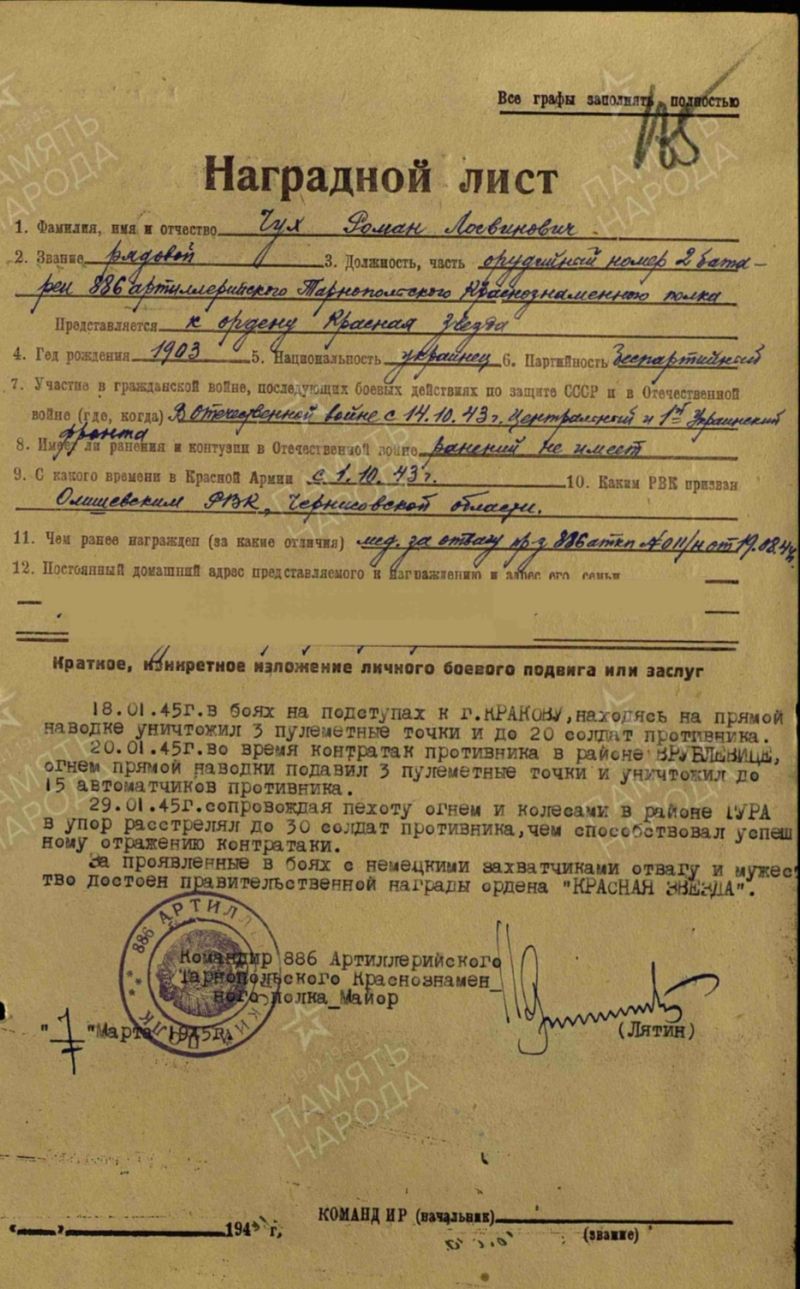 Все графы заполнять полностью
Наградной лист
1. Фамилия, имя и отчество Чух Роман Логвинович
2. Звание рядовой 3. Должность, часть орудийный номер 2 бата-
реи 886 артиллерийского Тарнопольского Краснознаменного полка
Представляется к ордену Красная Звезда
4. Год рождения 1903 5. Национальность украинец 6. Партийность беспартийный
7. Участие в гражданской войне, последующих боевых действиях по защите СССР и в Отечественной
войне (где, когда) В Отечественной войне с 14.10.43г. Центральский и 1й Украинский
фронта
8. Имеет ли ранения и контузии в Отечественной войне ранений не имеет
9. С какого времени в Красной Армии с 1.10.43г. 10. Каким РВК призван
Олишевским РВК, Черниговской области.
11. Чем ранее награжден (за какие отличия) мед. за отвагу пр-з 886 аткп №011/н от 19.08.44
12. Постоянный домашний адрес представляемого к награждению и адрес его семьи
Краткое, конкретное изложение личного боевого подвига или заслуг
18.01.45г.в боях на подступах к г.КРАКОВУ,находясь на прямой
наводке уничтожил 3 пулеметные точки и до 20 солдат противника.
20.01.45г.во время контратак противника в районе ВРУБЛЕВИЦЕ,
огнем прямой наводки подавил 3 пулеметные точки и уничтожил до
15 автоматчиков противника.
29.01.45г.сопровождая пехоту огнем и колесами в районе ГУРА
в упор расстрелял до 30 солдат противника,чем способствовал успеш
ному отражению контратаки.
За проявленные в боях с немецкими захватчиками отвагу и мужес
тво достоен правительственной награды ордена "КРАСНАЯ ЗВЕЗДА".
886 АРТИЛ
Командир 886 Артиллерийского
Тарнопольского Краснознамен_
ного полка_Майор
"1" Марта 1945г. (Лятин)
ПАМЯТЬ
НАРОДА
КОМАНДИР (начальник)
" " 194 г. (звание)